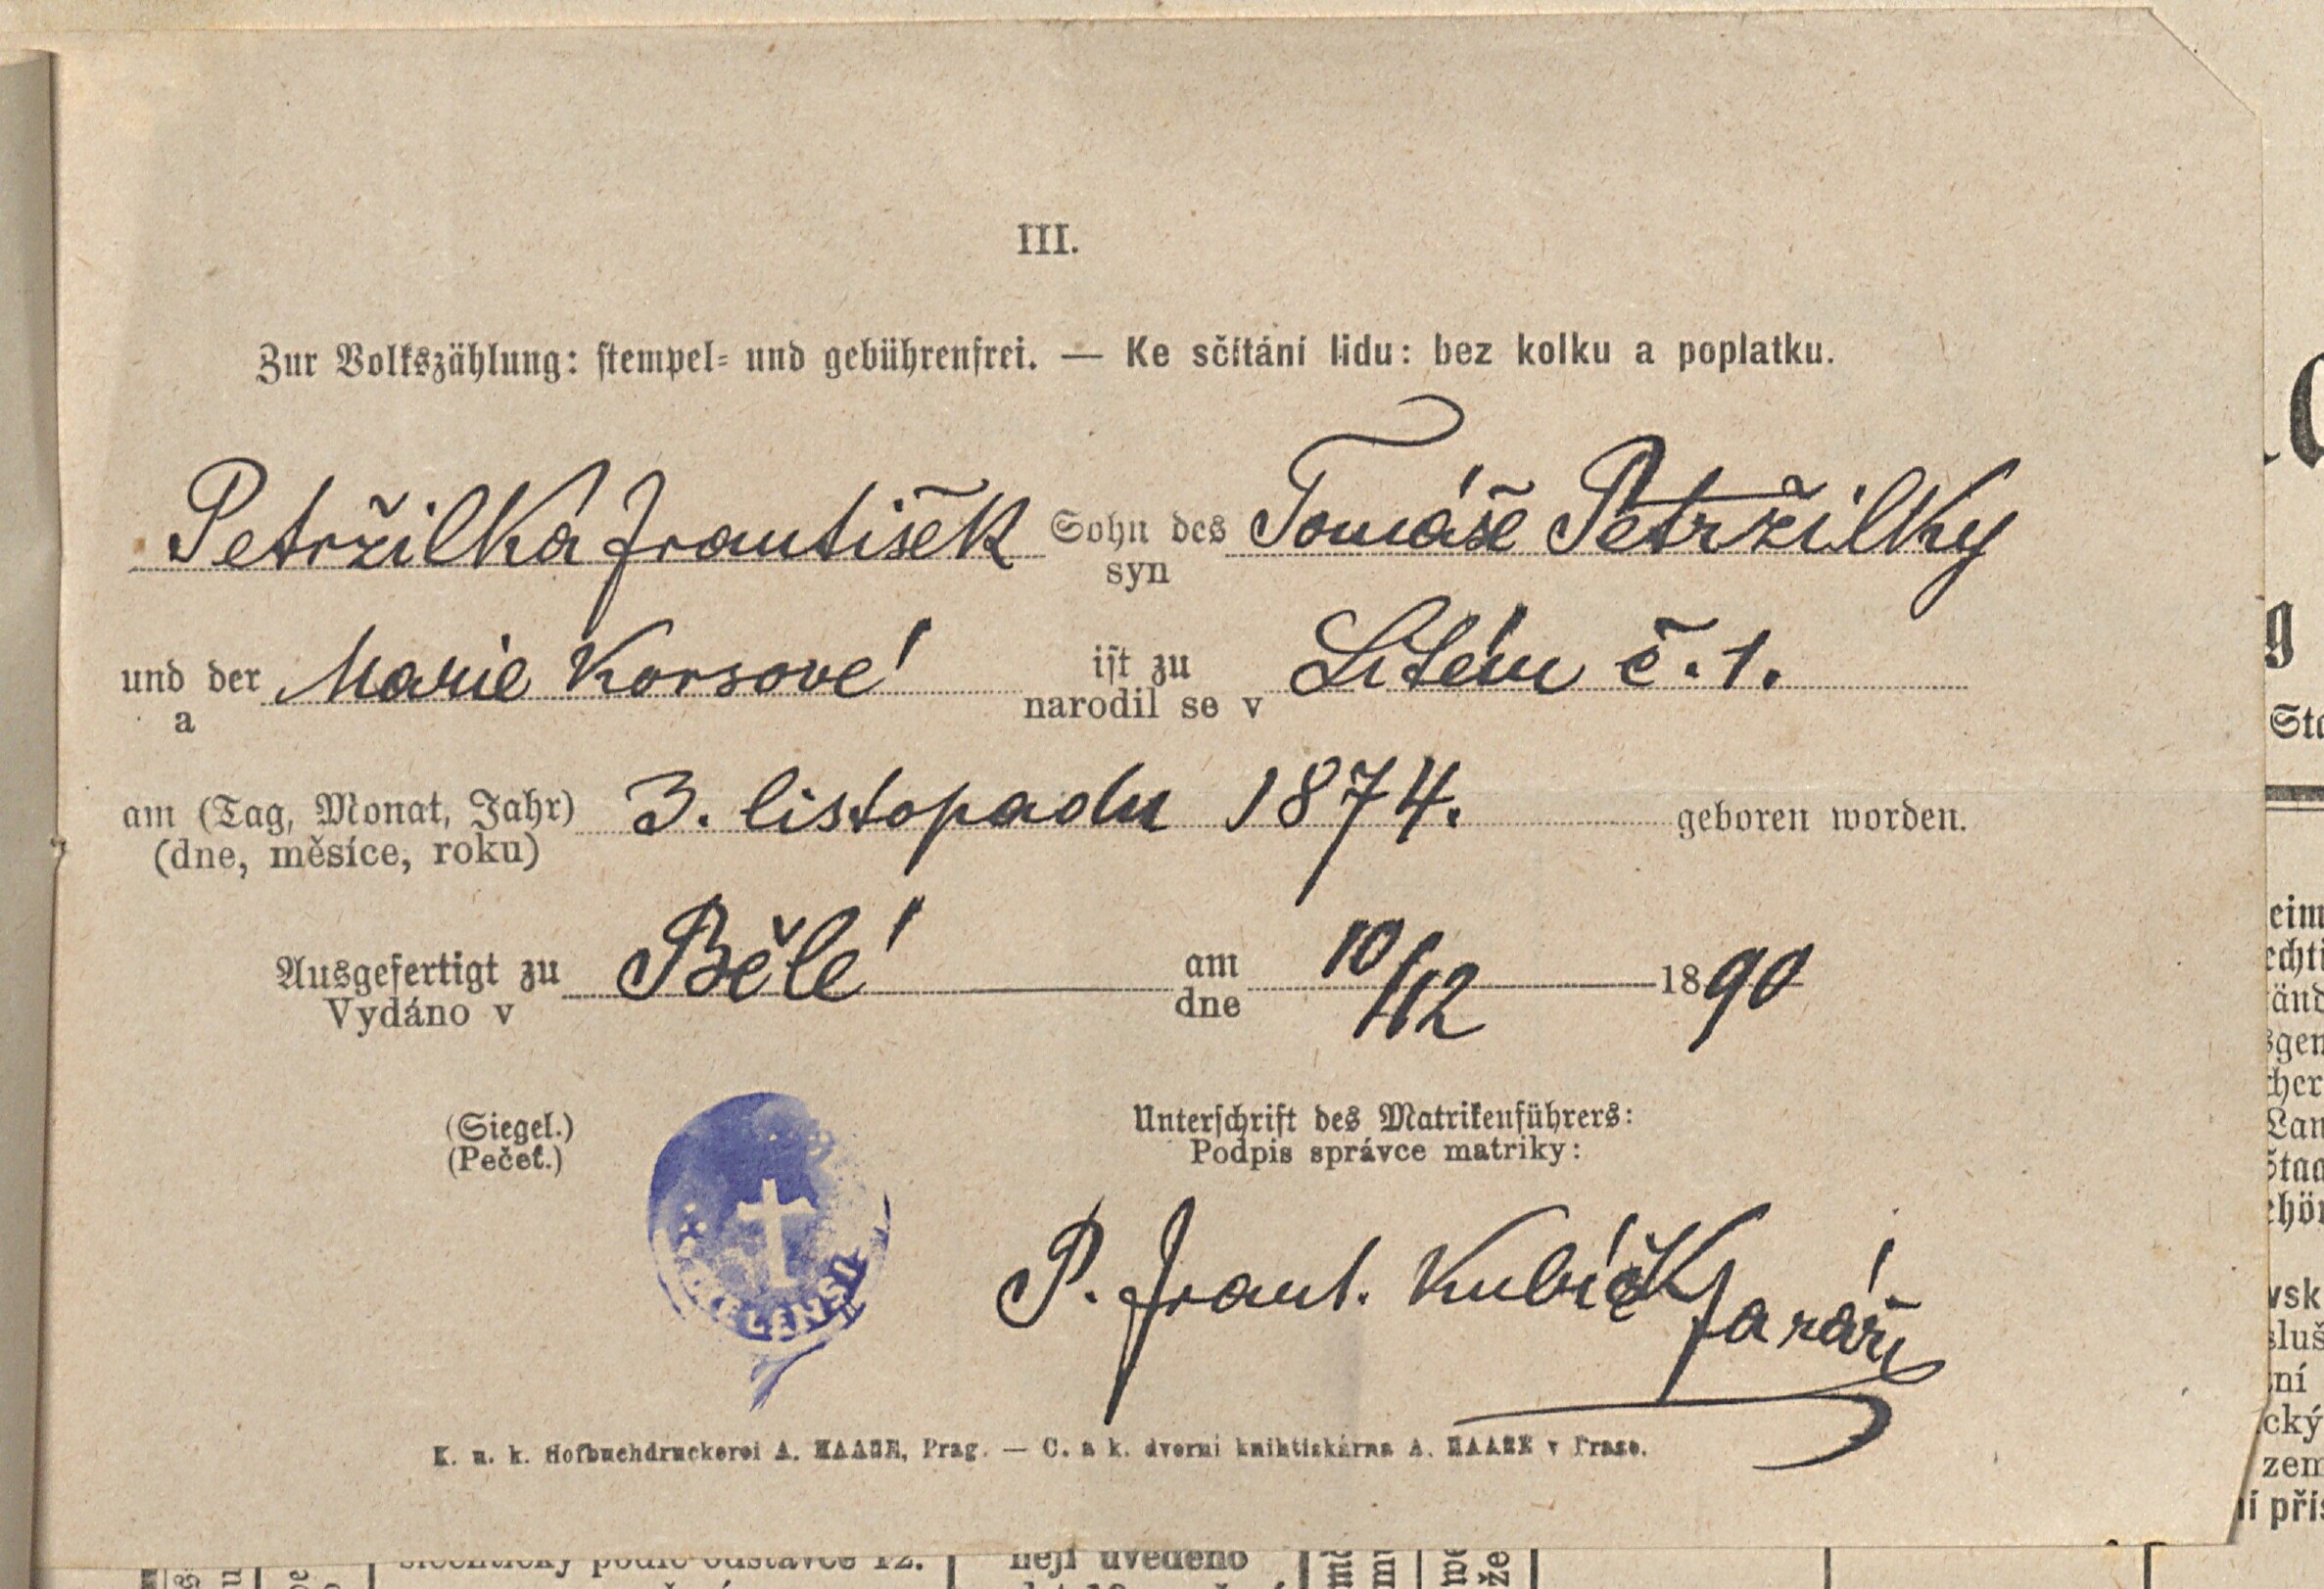 III.
Zur Volkszählung: stempel- und gebührenfrei. — Ke sčítání lidu: bez kolku a poplatku.
Petržilka František Sohn des Tomáše Petržilky
syn
und der Marie Korsové ist zu Litém č. 1.
a narodil se v
am (Tag, Monat, Jahr) 3. listopadu 1874. geboren worden.
(dne, měsíce, roku)
Ausgefertigt zu Bělé am 10/12 1890
Vydáno v dne
(Siegel.) Unterschrift des Matrikenführers:
(Pečeť.) Podpis správce matriky:
P. Frant. Kubíček farář
K. u. k. Hofbuchdruckerei A. HAASE, Prag. — C. a k. dvorní knihtiskárna A. HAASE v Praze.
šlechtický podle odstavce 12.
není uvedeno